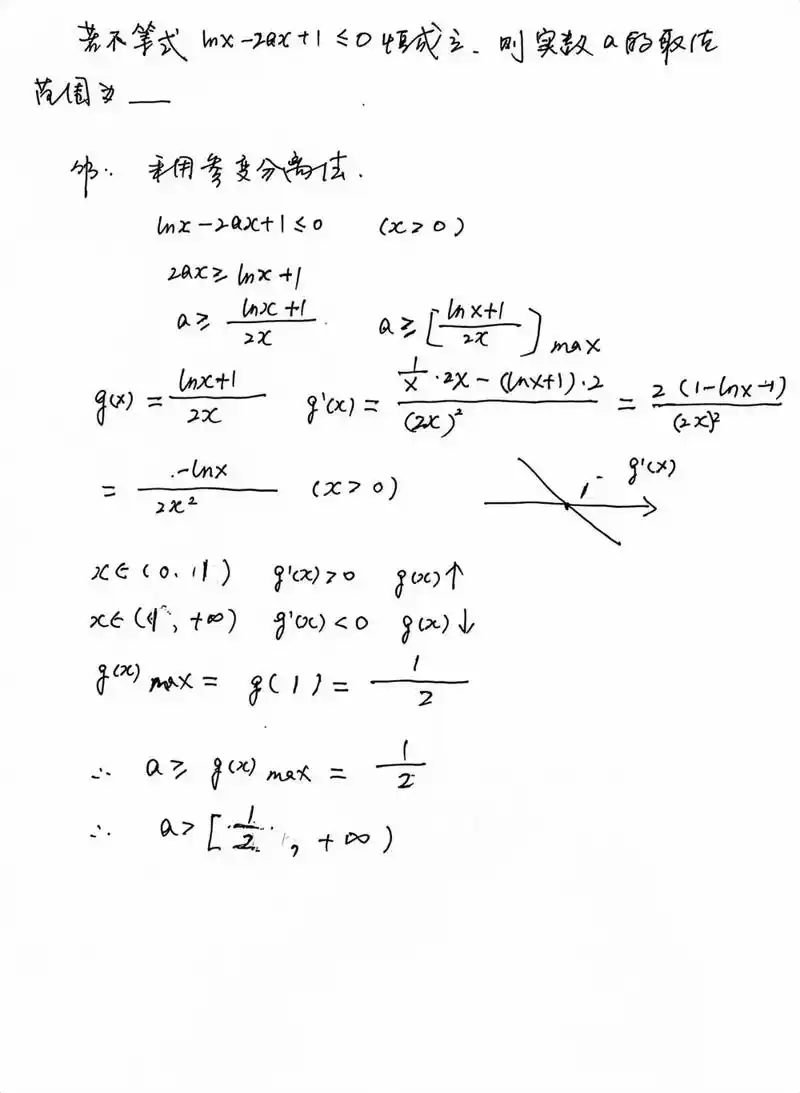 若不等式 lnx-2ax+1≤0 恒成立. 则实数 a 的取值
范围为 ___
解: 采用参变分离法.
lnx-2ax+1≤0 (x>0)
2ax≥lnx+1
a≥ (lnx+1)/(2x) a≥[(lnx+1)/(2x)]max
g(x) = (lnx+1)/(2x) g'(x) = (1/x·2x-(lnx+1)·2)/(2x)² = 2(1-lnx-1)/(2x)²
= -lnx/(2x²) (x>0) 1 g'(x)
x∈(0,1) g'(x)>0 g(x)↑
x∈(1,+∞) g'(x)<0 g(x)↓
g(x)max = g(1) = 1/2
∴ a≥g(x)max = 1/2
∴ a>[1/2, +∞)